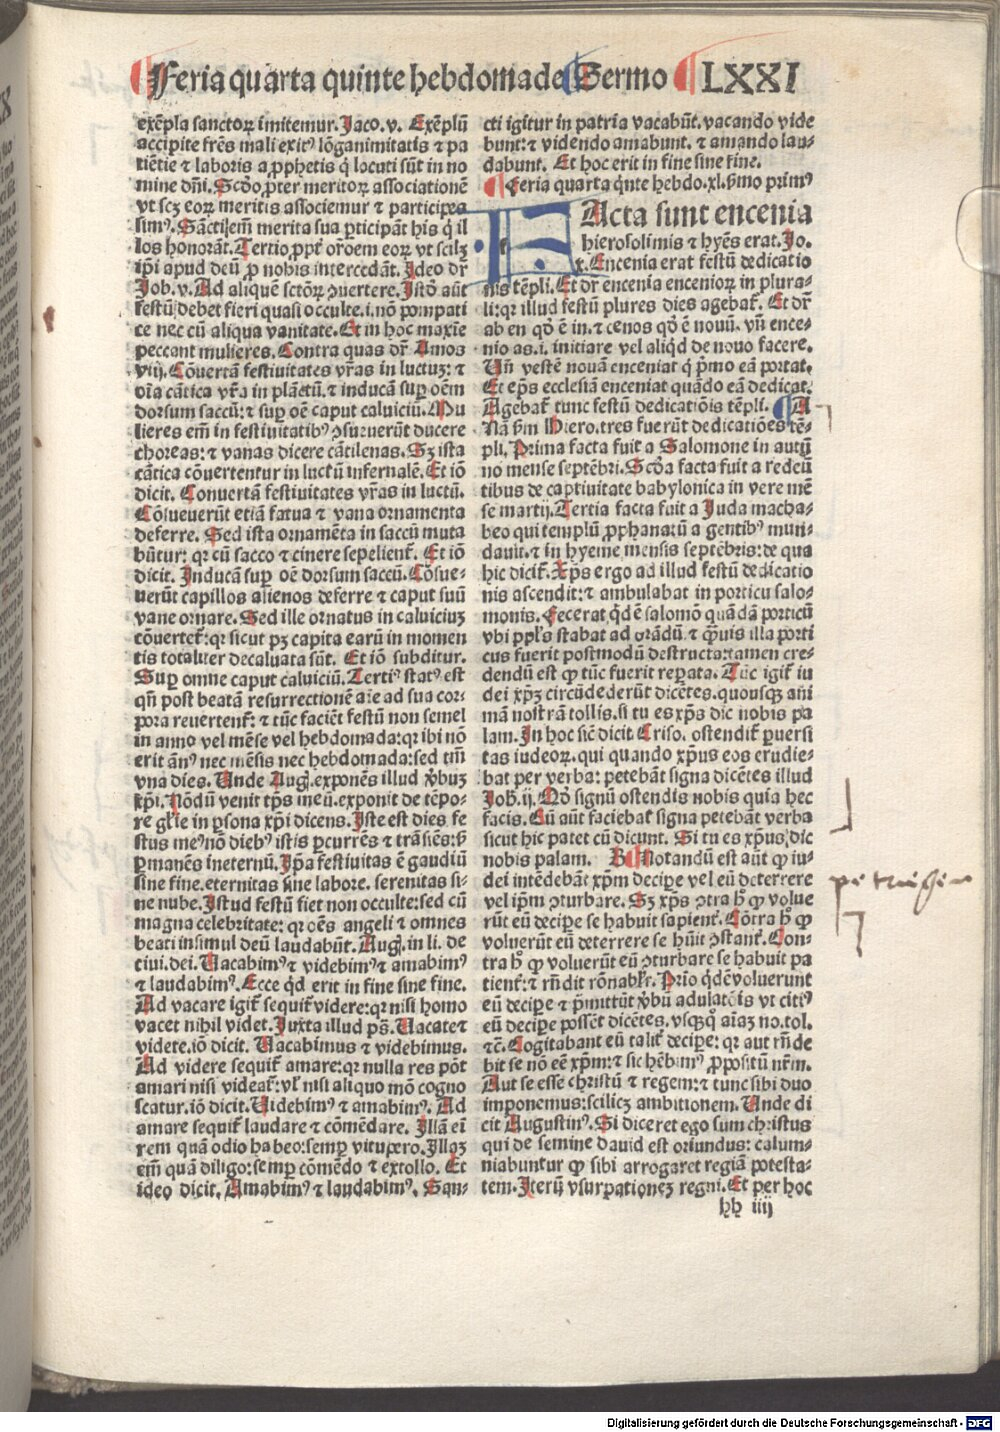 Feria quarta quinte hebdomade Sermo LXXI
exēpla sanctoꝝ imitemur. Jaco. v. Exēplū
accipite frēs mali exitꝰ lōganimitatis ⁊ pa
tiētie ⁊ laboris a ꝓphetis q̇ locuti sūt in no
mine dn̄i. Scd̄o ꝓpter meritoꝝ associationē
vt scꝫ eoꝝ meritis associemur ⁊ participes
simꝰ. Sāctiem̄ merita sua ꝑticipāt his q̇ il
los honorāt. Tertio ꝓpt̄ or̄oem eoꝝ vt scilꝫ
ip̄i apud deū ꝓ nobis intercedāt. Ideo dr̄
Job. v. Ad aliquē sctōꝝ ꝯuertere. Istd̄ aūt
festū debet fieri quasi occulte. i. nō pompati
ce nec cū aliqua vanitate. Et in hoc maxīe
peccant mulieres. Contra quas dr̄ Amos
viij. Cōuertā festiuitates vr̄as in luctuꝫ: ⁊
oīa cātica vr̄a in plāctū. ⁊ inducā suꝑ oēm
dorsum saccū: ⁊ suꝑ oē caput caluiciū. Mu
lieres em̄ in festiuitatibꝰ ꝯsueuerūt ducere
choreas: ⁊ vanas dicere cātilenas. Sꝫ ista
cātica cōuertentur in luctū infernalē. Et iō
dicit. Conuertā festiuitates vr̄as in luctū.
Cōsueuerūt etiā fatua ⁊ vana ornamenta
deferre. Sed ista ornamēta in saccū muta
būtur: qꝛ cū sacco ⁊ cinere sepelient̄. Et iō
dicit. Inducā suꝑ oē dorsum saccū. Cōsue-
uerūt capillos alienos deferre ⁊ caput suū
vane ornare. Sed ille ornatus in caluiciuꝫ
cōuertet̄: qꝛ sicut pꝫ capita earū in momen
tis totaliter decaluata sūt. Et iō subditur.
Suꝑ omne caput caluiciū. Tertiꝰ statꝰ est
qn̄ post beatā resurrectionē aīe ad sua cor-
pora reuertent̄: ⁊ tūc faciēt festū non semel
in anno vel mēse vel hebdomada: qꝛ ibi nō
erit ānꝰ nec mēsis nec hebdomada: sed tm̄
vna dies. Unde Aug. exponēs illud v̄buꝫ
xp̄i. Nōdū venit tp̄s meū. exponit de tēpo-
re glīe in ꝑsona xp̄i dicens. Iste est dies fe
stus meꝰ nō diebꝰ istis ꝑcurrēs ⁊ trāsiēs: s̄
ꝑmanēs ineternū. Ip̄a festiuitas ē gaudiū
sine fine. eternitas sine labore. serenitas si-
ne nube. Istud festū fiet non occulte: sed cū
magna celebritate: qꝛ oēs angeli ⁊ omnes
beati insimul deū laudabūt. Aug. in li. de
ciui. dei. Uacabimꝰ ⁊ videbimꝰ ⁊ amabimꝰ
⁊ laudabimꝰ. Ecce qd̄ erit in fine sine fine.
Ad vacare igit̄ sequit̄ videre: qꝛ nisi homo
vacet nihil videt. Juxta illud ps̄. Uacate ⁊
videte. iō dicit. Uacabimus ⁊ videbimus.
Ad videre sequit̄ amare: qꝛ nulla res pōt
amari nisi videat̄: vl̄ nisi aliquo mō cogno
scatur. iō dicit. Uidebimꝰ ⁊ amabimꝰ. Ad
amare sequit̄ laudare ⁊ cōmēdare. Illā eī
rem quā odio habeo: semꝑ vituꝑero. Illaꝫ
em̄ quā diligo: semꝑ cōmēdo ⁊ extollo. Et
ideo dicit. Amabimꝰ ⁊ laudabimꝰ. San-
cti igitur in patria vacabūt. vacando vide
bunt: ⁊ videndo amabunt. ⁊ amando lau-
dabunt. Et hoc erit in fine sine fine.
Feria quarta q̇nte hebdo. xl. s̄mo primꝰ
FActa sunt encenia
hierosolimis ⁊ hyēs erat. Jo.
x. Encenia erat festū dedicatio
nis tēpli. Et dr̄ encenia encenioꝝ in plura-
li: qꝛ illud festū plures dies agebat̄. Et dr̄
ab en qd̄ ē in. ⁊ cenos qd̄ ē nouū. vn̄ ence-
nio as. i. initiare vel aliq̇d de nouo facere.
Un̄ vestē nouā enceniat q̇ pͥmo eā portat.
Et ep̄s ecclesiā enceniat quādo eā dedicat.
Agebat̄ tunc festū dedicatiōis tēpli. A
Nā s̄m Hiero. tres fuerūt dedicatiōes tē-
pli. Prima facta fuit a Salomone in autū
no mense septēbri. Scd̄a facta fuit a redeū
tibus de captiuitate babylonica in vere mē
se martij. Tertia facta fuit a Juda macha-
beo qui templū ꝓphanatū a gentibꝰ mun-
dauit. ⁊ in hyeme mensis septēbris: de qua
hic dicit̄. Xp̄s ergo ad illud festū dedicatio
nis ascendit: ⁊ ambulabat in porticu salo-
monis. Fecerat q̇dē salomō quādā porticū
vbi ppl̄s stabat ad orādū. ⁊ q̄uis illa porti
cus fuerit postmodū destructa: tamen cre-
dendū est ꝙ tūc fuerit reꝑata. Tūc igit̄ iu
dei xp̄ꝫ circūdederūt dicētes. quousqꝫ aīi
mā nostrā tollis. si tu es xp̄s dic nobis pa
lam. In hoc sic̄ dicit Criso. ostendit̄ ꝑuersi
tas iudeoꝝ. qui quando xp̄us eos erudie-
bat per verba: petebāt signa dicētes illud
Joh̄. ij. Qd̄ signū ostendis nobis quia hec
facis. Cū aūt faciebat signa petebāt verba
sicut hic patet cū dicunt. Si tu es xp̄us, dic
nobis palam. B Notandū est aūt ꝙ iu-
dei intēdebāt xp̄m deciꝑe vel eū deterrere
vel ip̄m ꝯturbare. Sꝫ xp̄s ꝯtra h̄ ꝙ volue
rūt eū deciꝑe se habuit sapient̄. Cōtra h̄ ꝙ
voluerūt eū deterrere se hūit ꝯstant̄. Con-
tra h̄ ꝙ voluerūt eū ꝯturbare se habuit pa
tient̄: ⁊ rn̄dit rōnabl̄r. Prīo q̇dē voluerunt
eū deciꝑe ⁊ p̄mittūt v̄bū adulatōis vt citiꝰ
eū deciꝑe possēt dicētes. vsqꝫq̇ aīaꝫ no. tol.
⁊c̄. Cogitabant eū talit̄ deciꝑe: qꝛ aut rn̄de
bit se nō eē xp̄m: ⁊ sic hēbimꝰ ꝓpositū nr̄m.
Aut se esse christū ⁊ regem: ⁊ tunc sibi duo
imponemus: scilicꝫ ambitionem. Unde di
cit Augustinꝰ. Si diceret ego sum christus
qui de semine dauid est oriundus: calum-
niabuntur ꝙ sibi arrogaret regiā potesta-
tem. Iterū vsurpationeꝫ regni. Et per hoc
hh iiij
Digitalisierung gefördert durch die Deutsche Forschungsgemeinschaft - DFG